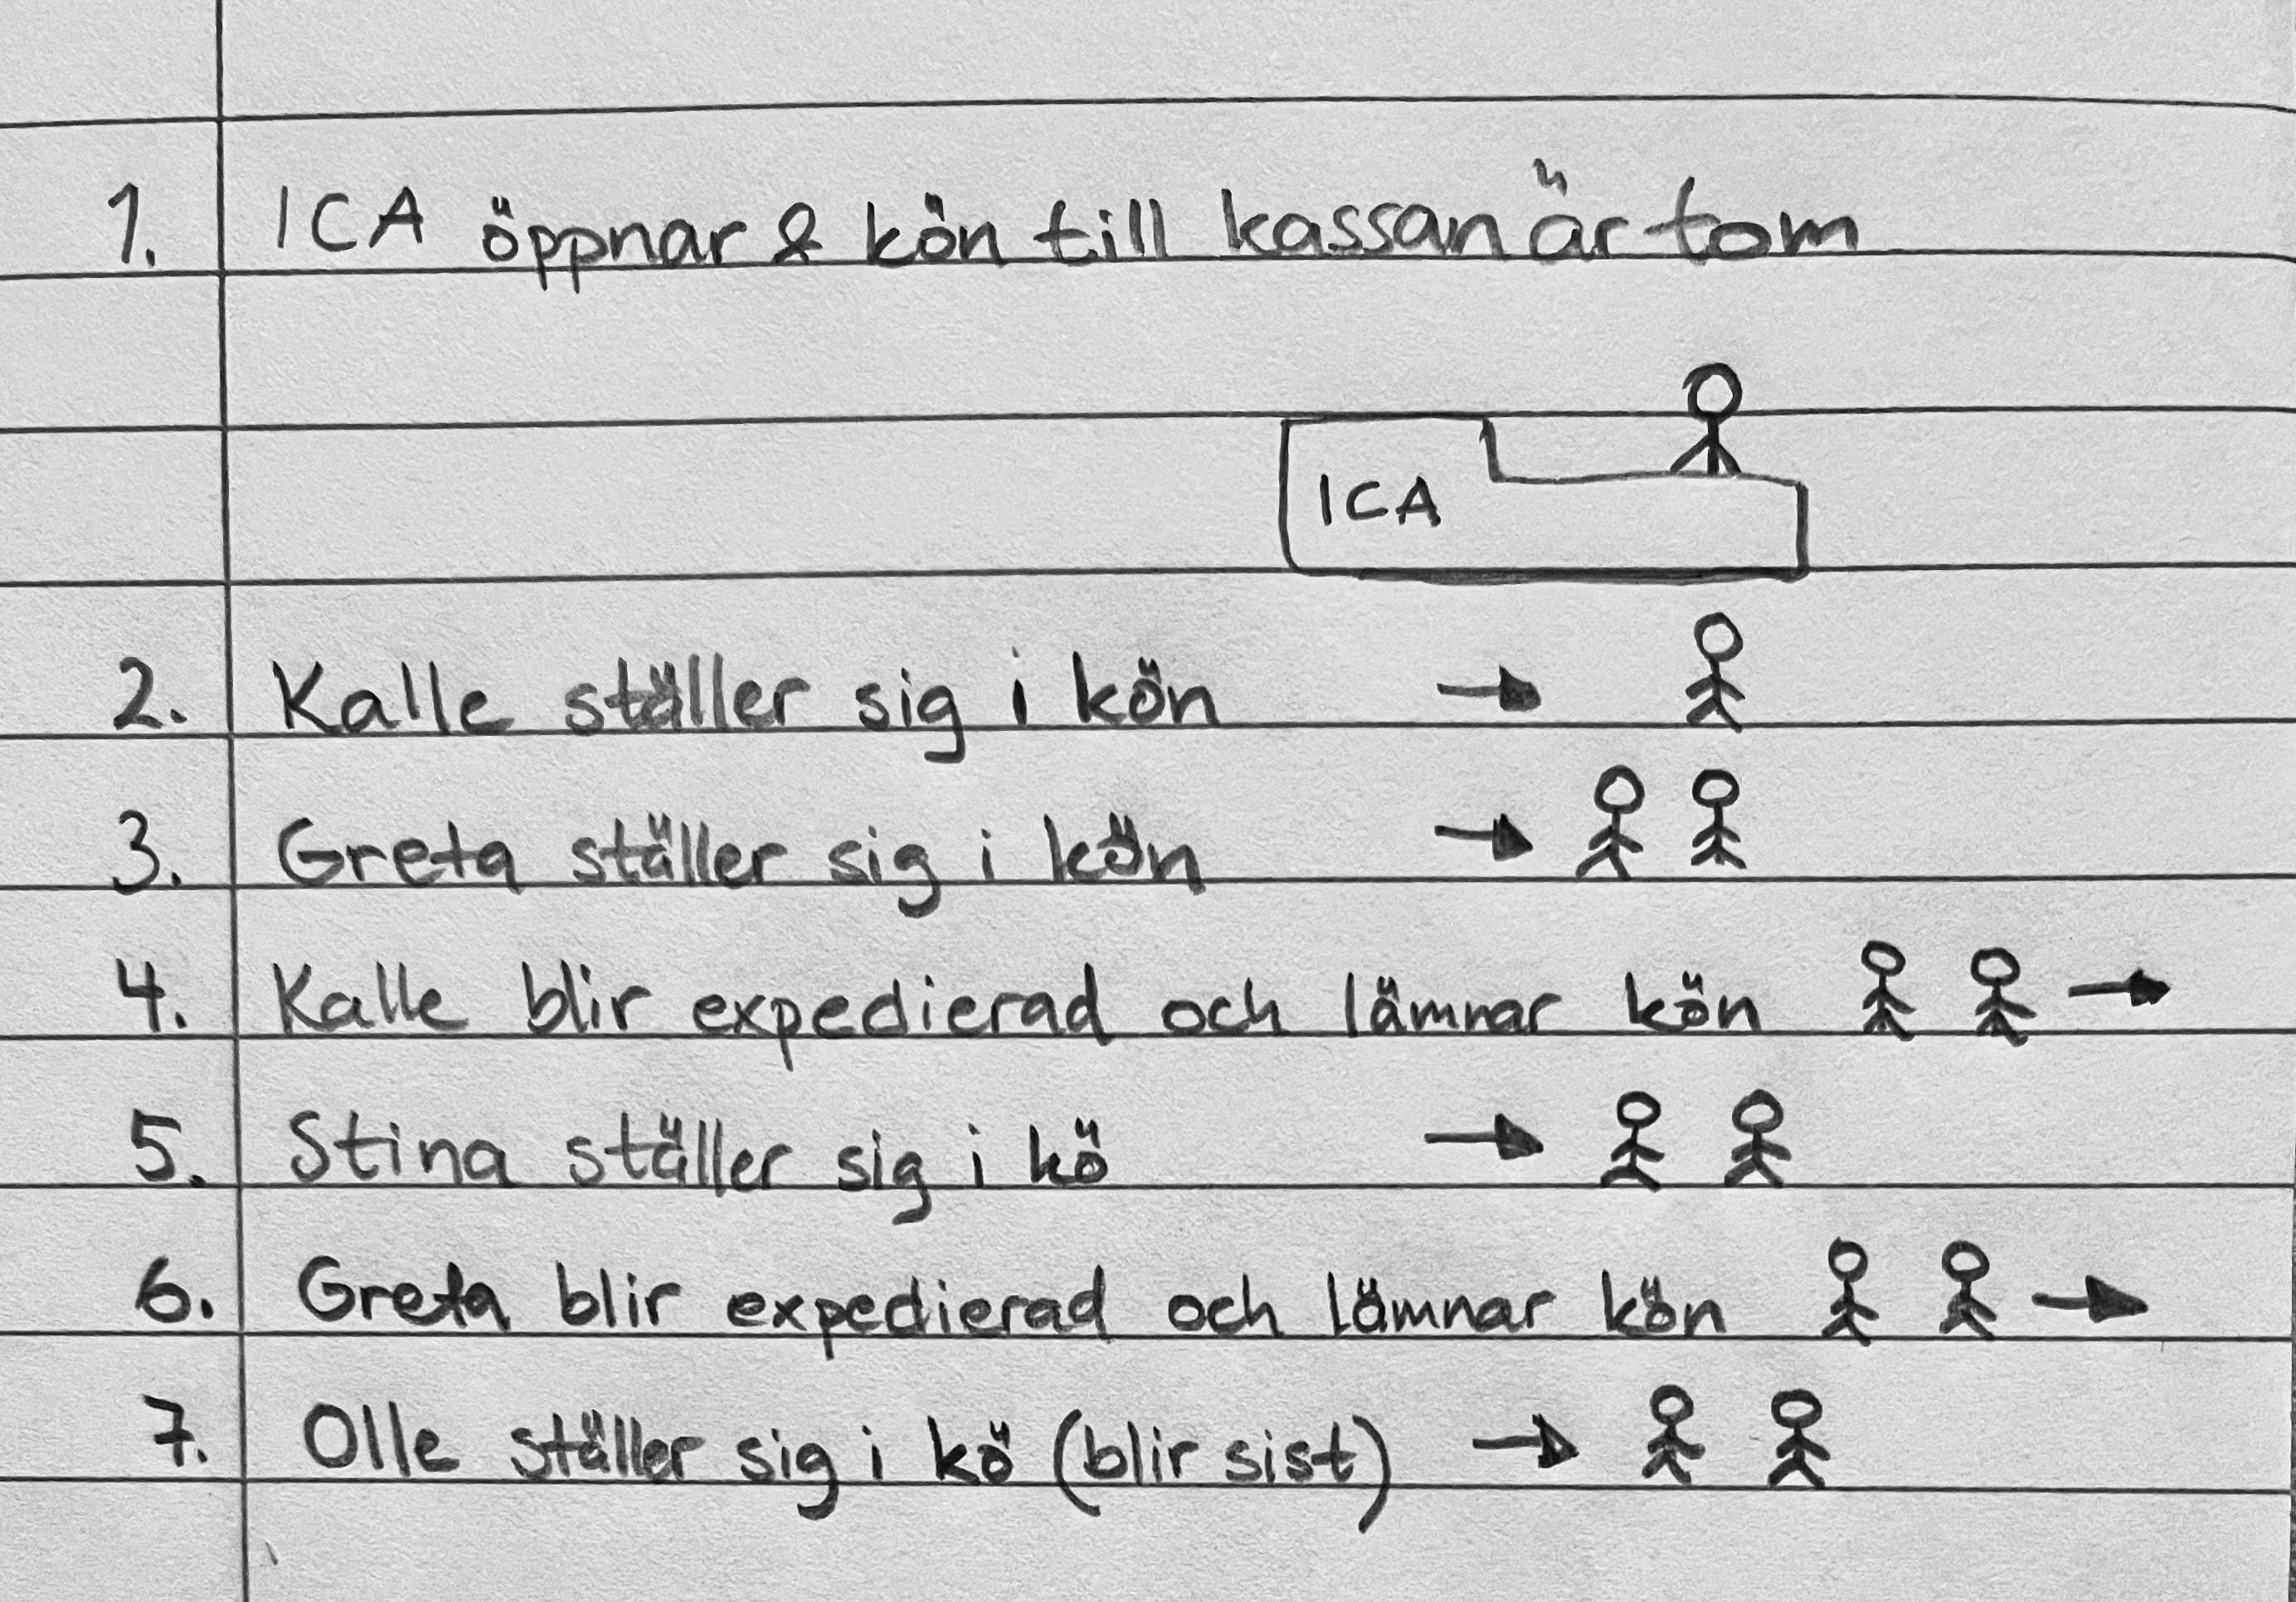 1. ICA öppnar & kön till kassan är tom
ICA
2. Kalle ställer sig i kön →
3. Greta ställer sig i kön →
4. Kalle blir expedierad och lämnar kön →
5. Stina ställer sig i kö →
6. Greta blir expedierad och lämnar kön →
7. Olle ställer sig i kö (blir sist) →